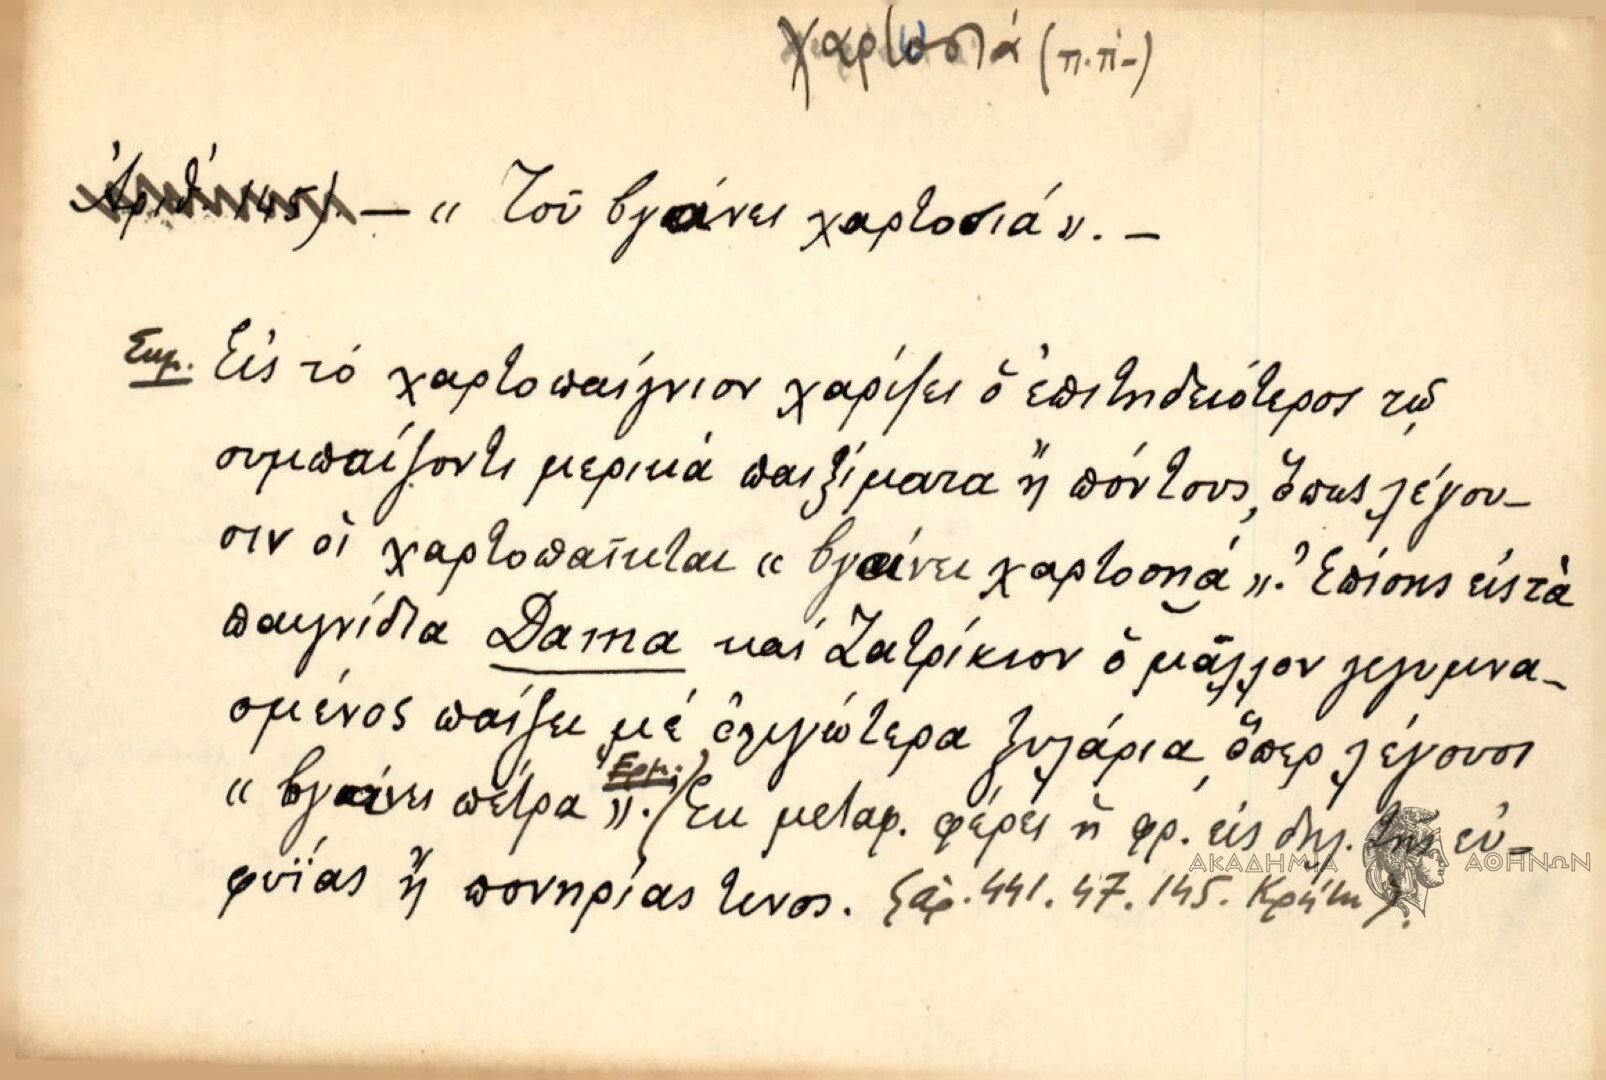 χαρτωσιά (π.π-)
Ἀριθ. 145). — « Τοῦ βγαίνει χαρτοσιά ». —
Σημ. Εἰς τό χαρτοπαίγνιον χαρίζει ὁ ἐπιτηδειότερος τῷ
συμπαίζοντι μερικά παιξίματα ἤ πόντους, ὅπως λέγου-
σιν οἱ χαρτοπαῖκται « βγαίνει χαρτοσιά ». Ἐπίσης εἰς τὰ
παιγνίδια Dama καί Ζατρίκιον ὁ μᾶλλον γεγυμνα-
σμένος παίζει μέ ὀλιγώτερα ξυλάρια, ὅπερ λέγουσι
« βγαίνει πέτρα ». (Ἑρμ.) Ἐκ μεταφ. φέρει ἡ φρ. εἰς δηλ. της εὐ-
φυΐας ἤ πονηρίας τινος. (ἀρ. 441. 47. 145. Κρήτη).
ΑΚΑΔΗΜΙΑ ΑΘΗΝΩΝ